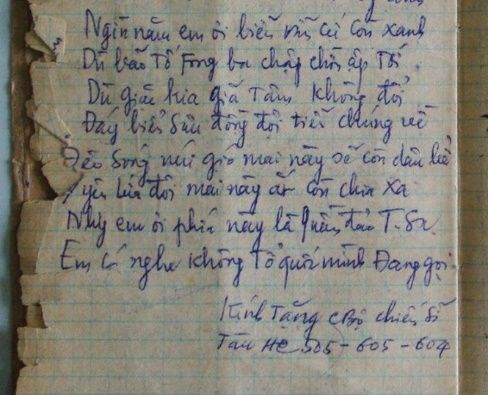 Ngìn năm em ơi biển vẫn cứ còn xanh
Dù bão Tố Fong ba chập chồn ấp Tới.
Dù giặc kia giã Tâm không đổi
Đáy biển sâu đồng đội tiễn chúng về
Đèo sông núi gió mai này sẽ còn dâu bể
yêu lứa đôi mai này ắt còn chia xa
Nhưng em ơi phía này là Quần đảo T.Sa
Em có nghe không Tổ quốc mình Đang gọi.
Kính Tặng CBộ chiến sĩ
Tàu HQ 505 - 605 - 604